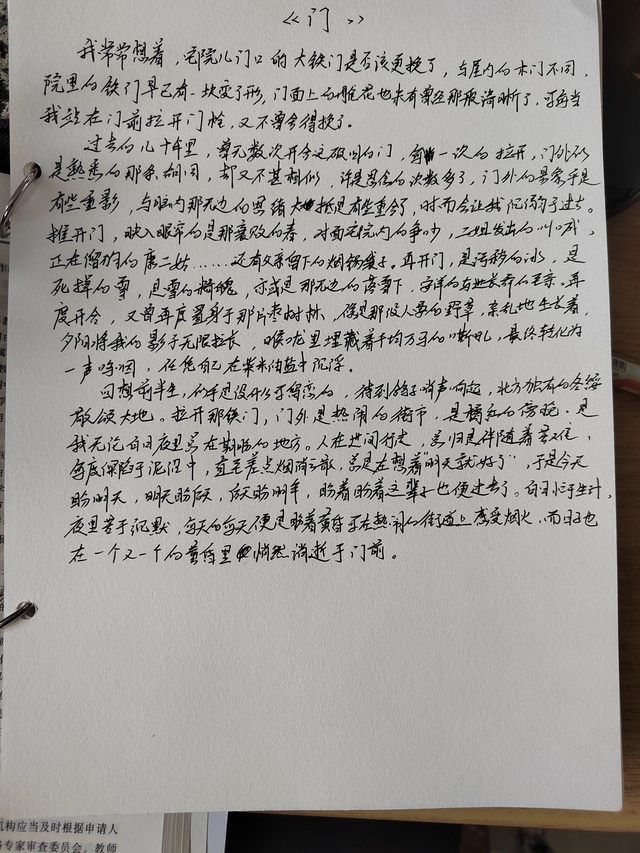 《门》
我常常想着，宅院儿门口的大铁门是否该更换了，与屋内的木门不同，
院里的铁门早已有一块变了形，门面上的雕花也未有曾经那般清晰了，可每当
我站在门前拉开门栓，又不曾舍得换了。
过去的几十年里，曾无数次开合这破旧的门，每一次的拉开，门外仍
是熟悉的那条胡同，却又不甚相似，许是思念的次数多了，门外的景象于是
有些重影，与脑内那无边的思绪大抵是有些重合了，时而会让我沉湎于过去。
推开门，映入眼帘的是那衰败的春，对面宅院内的争吵，二姐发出的叫喊，
正在遛狗的康二姑……还有父亲留下的烟锅袋子。再开门，是污秽的冰，是
死掉的雪，是雪的精魂，亦或是那无边的落雪下，
度开合，又曾再度置身于那片枣树林，像是那没人要的野草，杂乱地生长着，
夕阳将我的影子无限拉长，喉咙里埋藏着千均万马的嘶吼，最终转化为
一声呜咽，任凭自己在柴米油盐中沉浮。
回想前半生，似乎是没什么可留恋的，待到鸽子哨声响起，北方独有的冬绥
散落大地。拉开那铁门，门外是热闹的街市，是橘红的傍晚，是
我无论白日夜里总在期盼的地方。人在世间行走，总归是伴随着苦难，
每度深陷于泥泞中，直至差点烟消云散，总是在想着"明天就好了"，于是今天
盼明天，明天盼后天，后天盼明年，盼着盼着这辈子也便过去了。白日忙于生计，
夜里苦于沉默，每天的每天便是盼着黄昏可在热闹的街道上感受烟火，而日子也
在一个又一个的黄昏里悄然消逝于门前。
机构应当及时根据申请人
专家审查委员会。教师